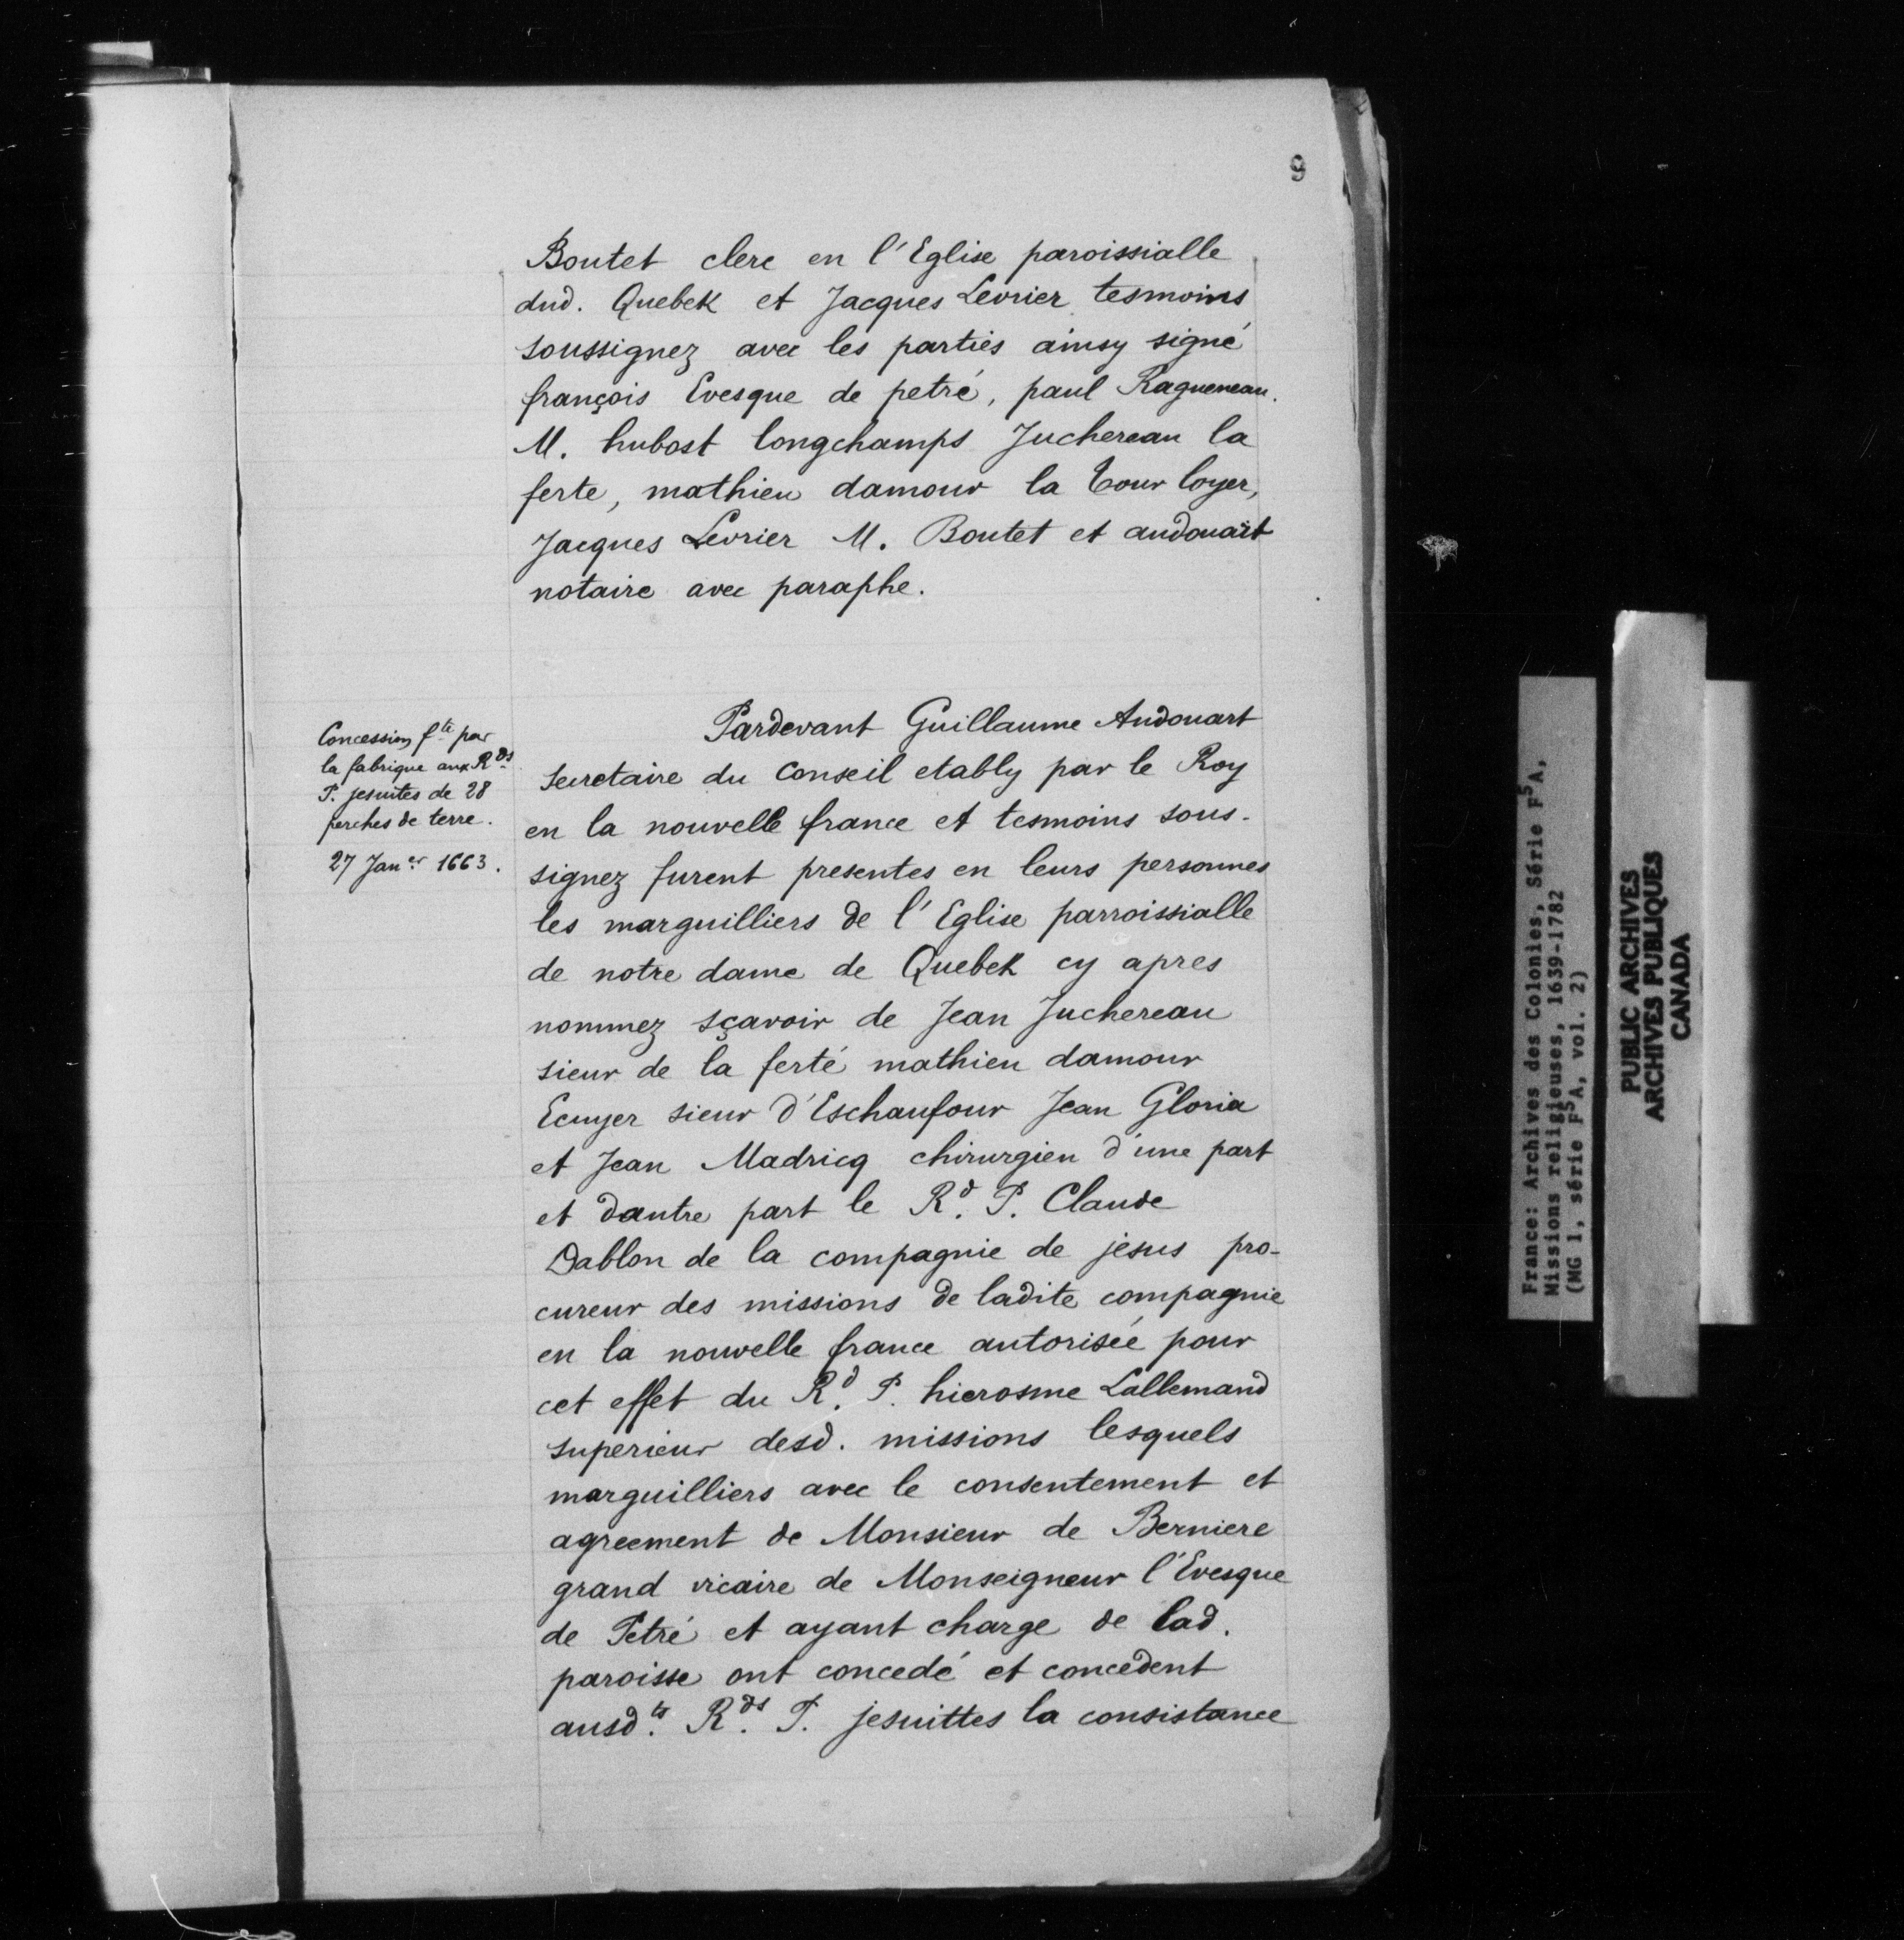 9
Boutet clerc en l'Eglise paroissialle
dud. Quebek et Jacques Levrier tesmoins
soussignez avec les parties ainsy signé
françois Evesque de petré, paul Ragueneau.
M. hubost longchamps Juchereau la
ferte, mathieu damour la Tour loyer,
Jacques Levrier M. Boutet et audouart
notaire avec paraphe.
Concession fte par
la fabrique aux Rds
P. jesuites de 28
perches de terre.
27 Janer 1663.
Pardevant Guillaume Audouart
secretaire du Conseil etably par le Roy
en la nouvelle france et tesmoins sous-
signez furent presentes en leurs personnes
les marguilliers de l'Eglise parroissialle
de notre dame de Quebek cy apres
nommez sçavoir de Jean Juchereau
sieur de la ferté mathieu damour
Ecuyer sieur d'Eschaufour Jean Gloria
et Jean Madricq chirurgien d'une part
et dautre part le Rd. P. Claude
Dablon de la compagnie de jesus pro-
cureur des missions de ladite compagnie
en la nouvelle france autorisée pour
cet effet du Rd. P. hierosme Lallemand
superieur desd. missions lesquels
marguilliers avec le consentement et
agreement de Monsieur de Berniere
grand vicaire de Monseigneur l'Evesque
de Petré et ayant charge de lad.
paroisse ont concedé et concedent
ausd.ts Rds. P. jesuittes la consistance
France: Archives des Colonies, Série F5A,
Missions religieuses, 1639-1782
(MG 1, série F5A, vol. 2)
PUBLIC ARCHIVES
ARCHIVES PUBLIQUES
CANADA